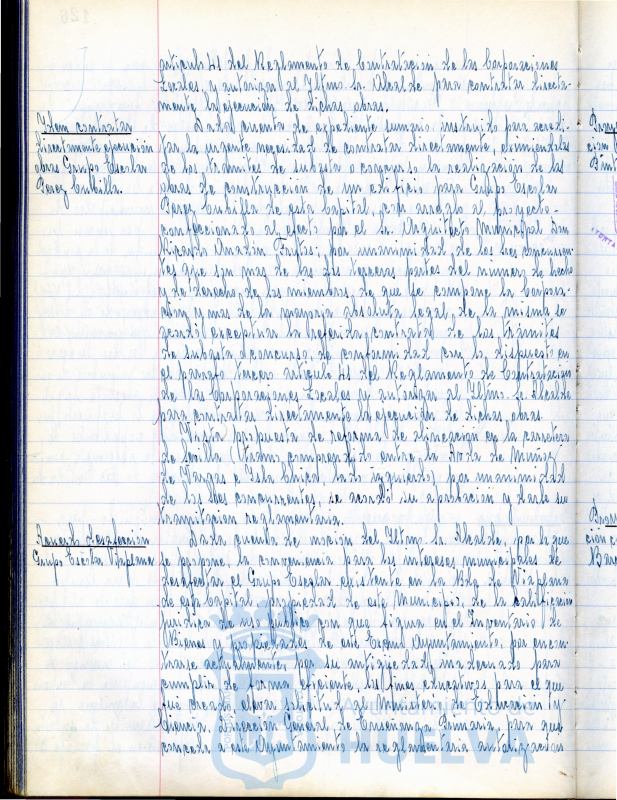 articulo 41 del Reglamento de Contratación de las Corporaciones
Locales y autorizar al Iltmo. Sr. Alcalde para contratar directa-
mente la ejecución de dichas obras.
Idem contratar
directamente ejecución
obras Grupo Escolar
Perez Cubilla.
Dada cuenta de expediente sumario instruido para acredi-
tar la urgente necesidad de contratar directamente, eximiendola
de los trámites de subasta o concurso la realización de las
obras de construcción de un edificio para Grupo Escolar
Perez Cubilla de esta Capital, con arreglo al proyecto
confeccionado al efecto por el Sr. Arquitecto Municipal Don
Ricardo Anadón Frutos; por unanimidad de los tres concurren-
tes que son mas de las dos terceras partes del numero de hecho
y de derecho, de los miembros, de que se compone la Corpora-
ción y mas de la mayoria absoluta legal, de la misma se
acordó exceptuar la referida contrata de los trámites
de subasta o concurso, de conformidad con lo dispuesto en
el parrafo tercero articulo 41 del Reglamento de Contratación
de las Corporaciones Locales y autorizar al Iltmo. Sr. Alcalde
para contratar directamente la ejecución de dichas obras.
Vista propuesta de reforma de alineación en la carretera
de Sevilla (tramo comprendido entre la Avda de Muñoz
de Vargas e Isla Chica, lado izquierdo) por unanimidad
de los tres concurrentes, se acordó su aprobación y darle su
tramitación reglamentaria.
Acuerdo desafección
Grupo Escolar Viaplana
Dada cuenta de moción del Iltmo. Sr. Alcalde, por la que
se propone, la conveniencia para los intereses municipales de
desafectar el Grupo Escolar existente en la Bda de Viaplana
de esta Capital, propiedad de este Municipio, de la calificación
juridica de uso publico con que figura en el Inventario de
Bienes y propiedades de este Excmo Ayuntamiento, por encon-
trarse actualmente, por su antiguedad, inadecuado para
cumplir de forma eficiente, los fines educativos, para el que
fue creado, elevar solicitud al Ministerio de Educación y
Ciencia, Dirección General de Enseñanza Primaria, para que
conceda a este Ayuntamiento la reglamentaria autorización
Ayuntamiento de
HUELVA